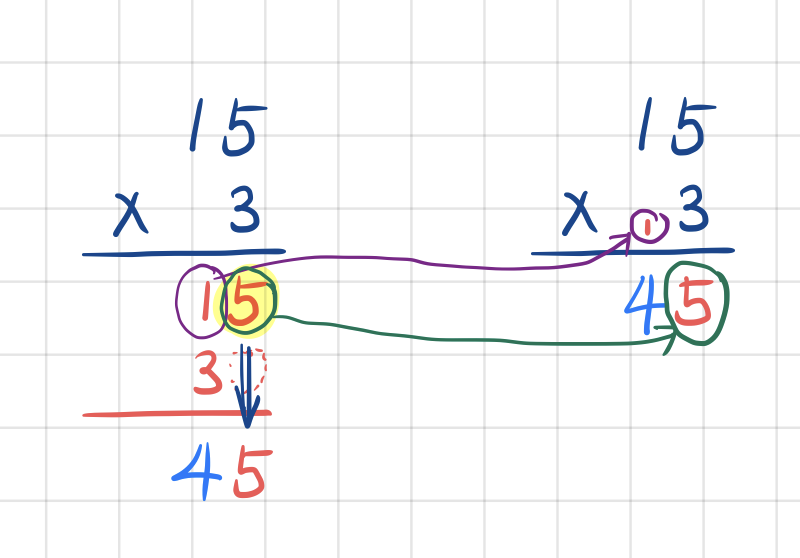 15
x 3
15
3
45
15
x 1 3
45